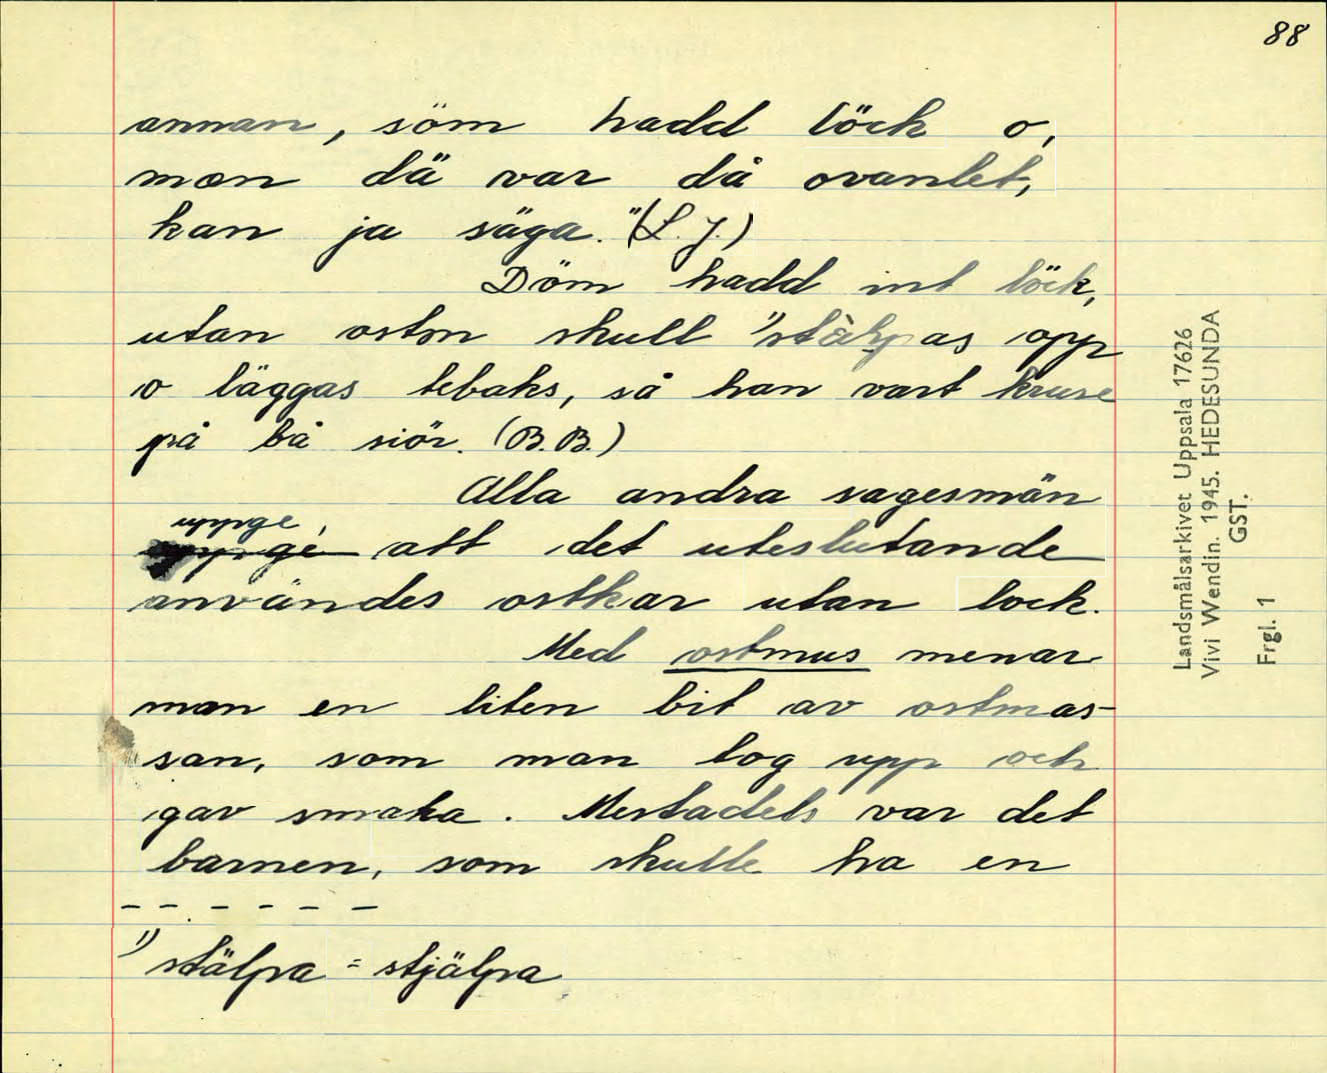 88
annan, söm hadd löck o,
men dä var då ovanlet,
kan ja säga." (L. J.)
Döm hadd int löck,
utan ostn skull 1) stälpas opp
o läggas tebaks, så han vart kruse
på bå siör. (B. B.)
Alla andra sagesmän
uppge,
att det uteslutande
användes ostkar utan lock.
Med ostmus menar
man en liten bit av ostmas-
san, som man tog upp och
gav smaka. Mestadels var det
barnen, som skulle ha en
1) stälpa = stjälpa
Landsmålsarkivet Uppsala 17626
Vivi Wendin. 1945. HEDESUNDA
GST.
Frgl. 1